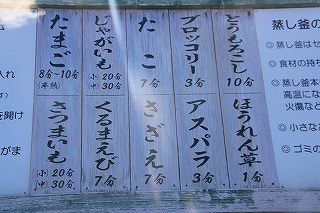 とうもろこし
10分
ブロッコリー
3分
たこ
7分
じゃがいも
小 20分
中 30分
たまご
8分〜10分
(半熟)
ほうれん草
1分
アスパラ
3分
さざえ
7分
くるまえび
7分
さつまいも
小 20分
中 30分
蒸し釜の
蒸し釜はセ
食材の持ち
蒸し釜本
高温にな
火傷など
小さなお
ゴミの
入れ
を開け
がま